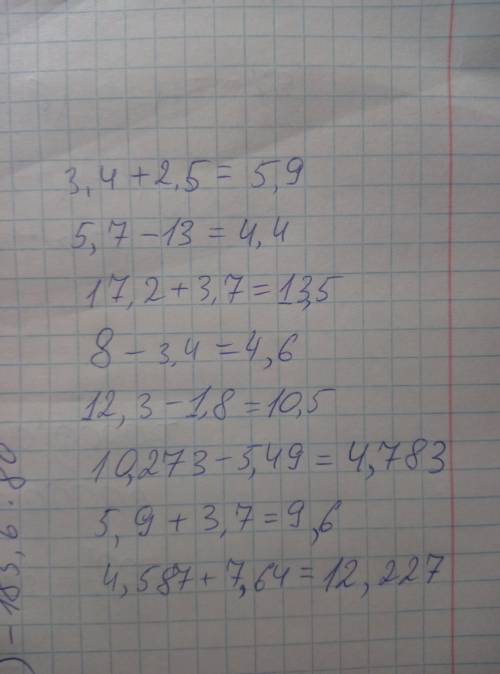 3,4 + 2,5 = 5,9
5,7 - 13 = 4,4
17,2 + 3,7 = 13,5
8 - 3,4 = 4,6
12,3 - 1,8 = 10,5
10,273 - 5,49 = 4,783
5,9 + 3,7 = 9,6
4,587 + 7,64 = 12,227
) - 183,6 · 80